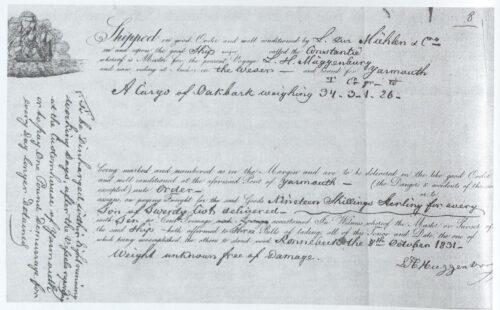 8
Shipped in good Order and well conditioned by L. Zur Mühlen & Co
in and upon the good Ship called the Constantia
whereof is Master for the present Voyage L. H. Müggenburg
and now riding at Anchor in the Weser and bound for Yarmouth
T C qr lb
A Cargo of Oakbark weighing 34-3-1-26-
being marked and numbered as in the Margin and are to be delivered in the like good Order
and well conditioned at the aforesaid Port of Yarmouth (the Dangers & accidents of the
excepted) unto Order
or to Assigns, he or they paying Freight for the said Goods Nineteen Shillings Sterling for every
Ton of Twenty Cwt delivered
with Average accustomed. In Witness whereof the Master or Purser of
the said Ship hath affirmed to Three Bills of Lading all of this Tenor and Date, the one of
which being accomplished, the others to stand void Rönnebeck the 8th October 1831.
Weight unknown free of Damage.
L H Muggenburg
To be discharged within Eight running
working Days, after the Vessels reporting
at the Customhouse of Yarmouth
or to pay One Pound Demurrage for
every Day longer detained